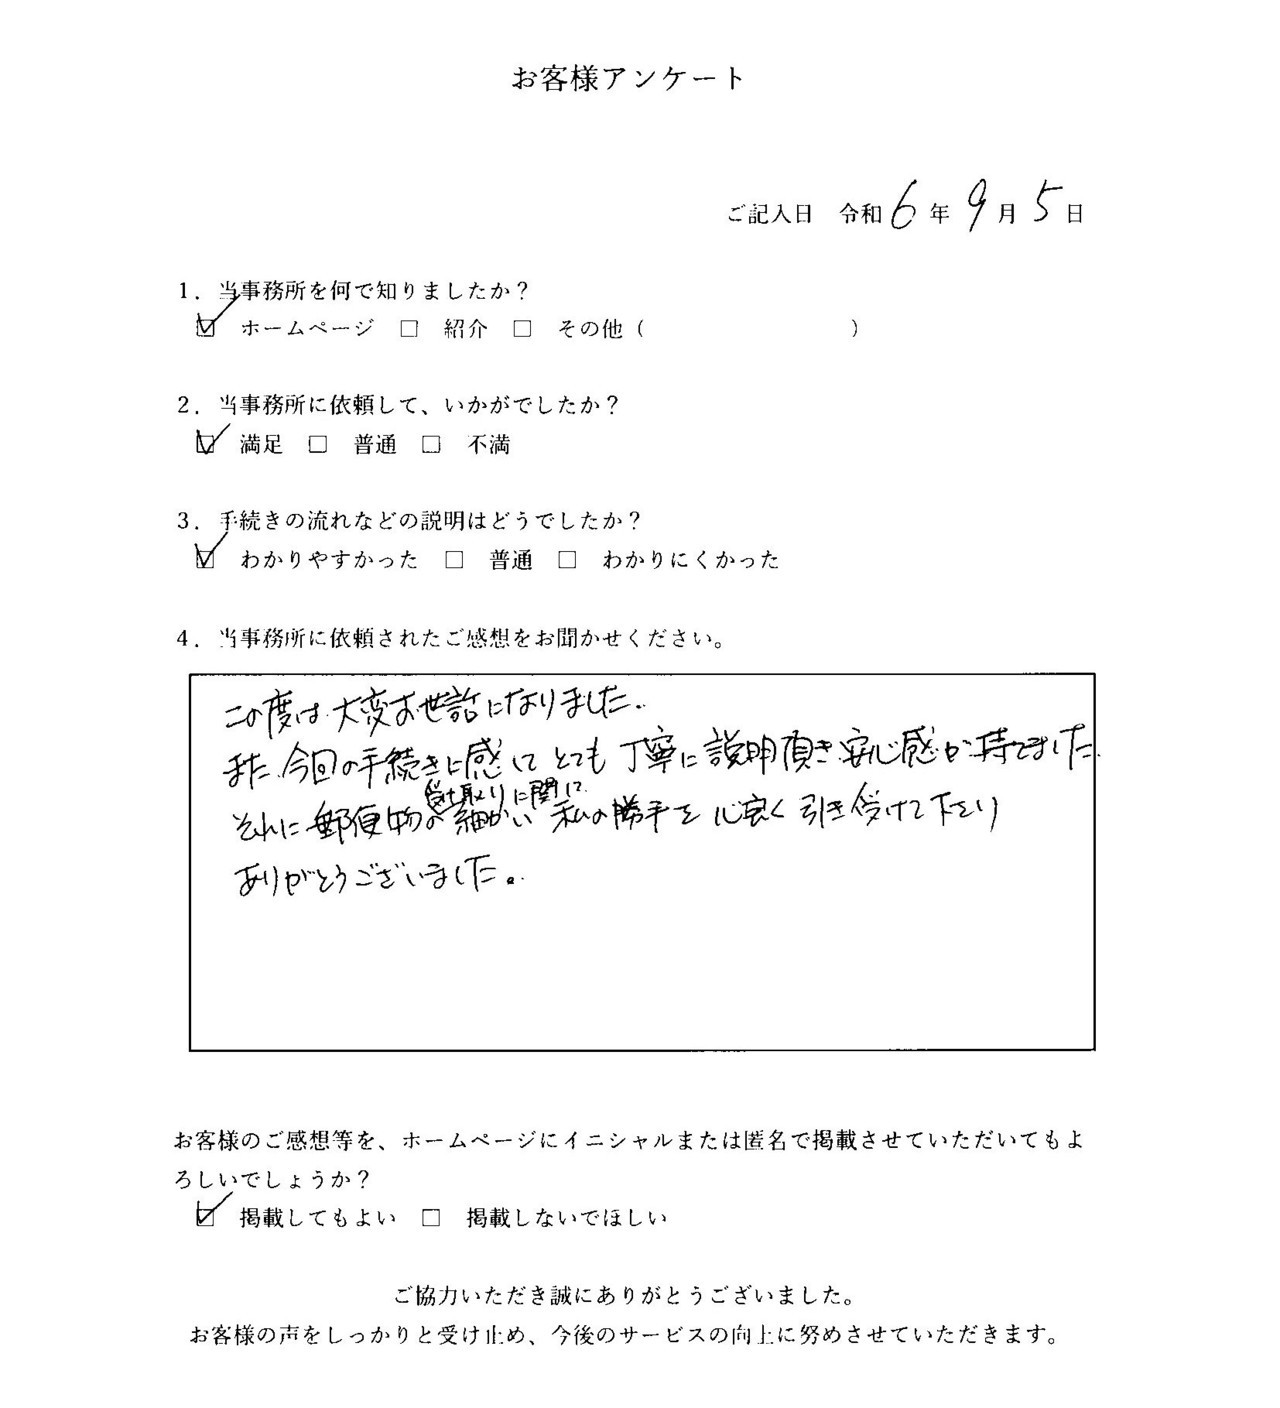 お客様アンケート
ご記入日 令和6年9月5日
1. 当事務所を何で知りましたか？
☑ ホームページ □ 紹介 □ その他（ ）
2. 当事務所に依頼して、いかがでしたか？
☑ 満足 □ 普通 □ 不満
3. 手続きの流れなどの説明はどうでしたか？
☑ わかりやすかった □ 普通 □ わかりにくかった
4. 当事務所に依頼されたご感想をお聞かせください。
この度は大変お世話になりました.
また.今回の手続きに感してとても丁寧に説明頂き安心感が持てました.
受け取りに関して
それに郵便物の細かい私の勝手を心良く引き受けて下さり
ありがとうございました。
お客様のご感想等を、ホームページにイニシャルまたは匿名で掲載させていただいてもよ
ろしいでしょうか？
☑ 掲載してもよい □ 掲載しないでほしい
ご協力いただき誠にありがとうございました。
お客様の声をしっかりと受け止め、今後のサービスの向上に努めさせていただきます。